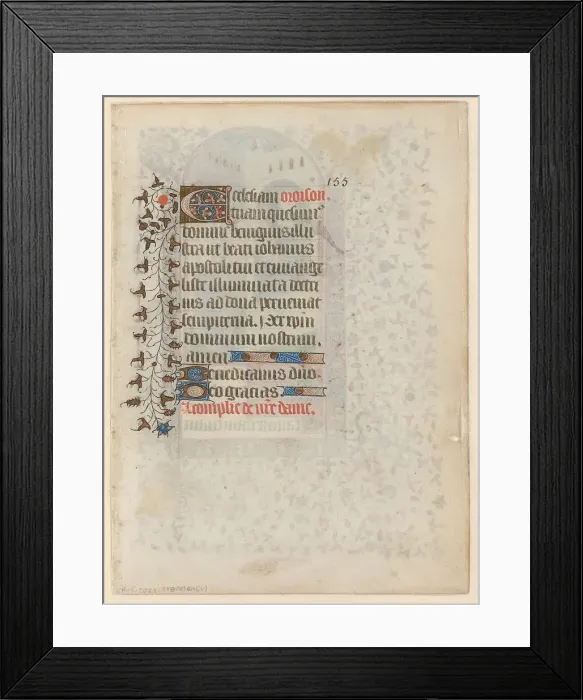 155
Ecclesiam oroison.
tuam quesum
domine benignus illu
stra ut beati iohannis
apostoli tui et euuange
liste illuminata doctri
nis ad dona perueniat
sempiterna. Per xpm
dominum nostrum.
amen
Benedicamus dno
Deo gracias
A complie de nre dame.